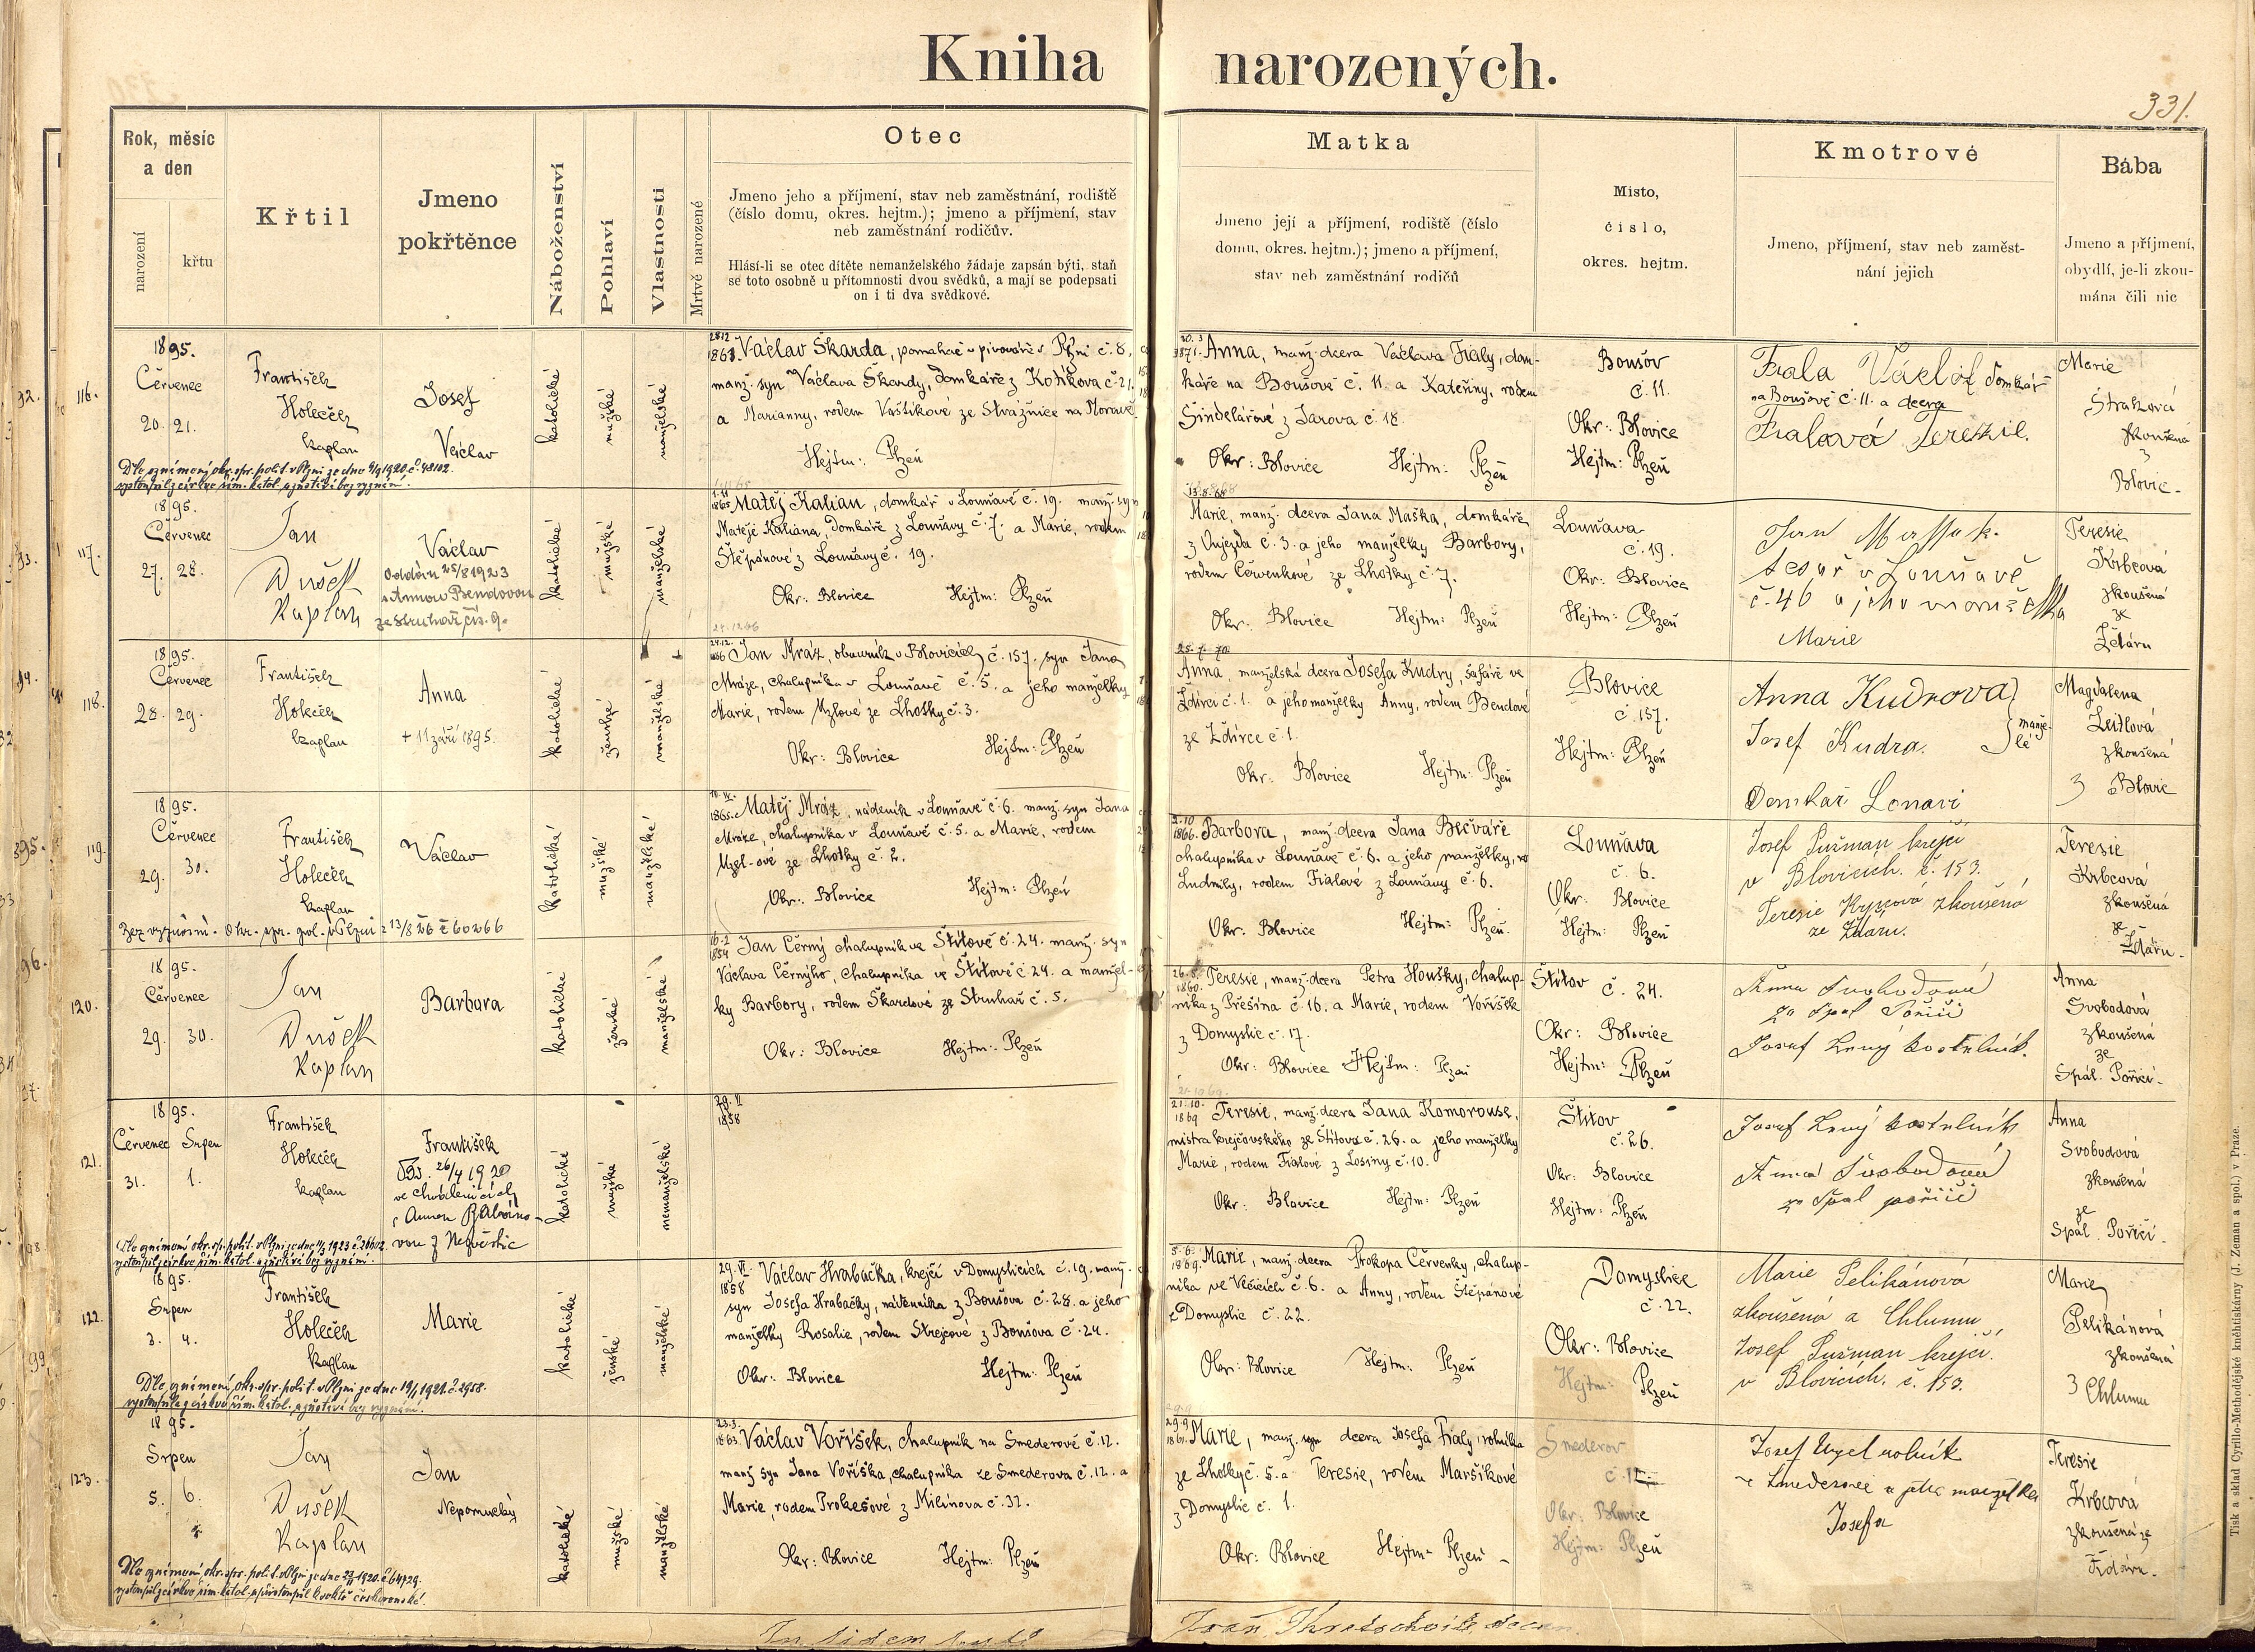 Kniha narozených.
331.
Rok, měsíc
a den
narození
křtu
Křtil
Jmeno
pokřtěnce
Náboženství
Pohlaví
Vlastnosti
Mrtvě narozené
Otec
Jmeno jeho a příjmení, stav neb zaměstnání, rodiště
(číslo domu, okres. hejtm.); jmeno a příjmení, stav
neb zaměstnání rodičův.
Hlásí-li se otec dítěte nemanželského žádaje zapsán býti, staň
se toto osobně u přítomnosti dvou svědků, a mají se podepsati
on i ti dva svědkové.
Matka
Jmeno její a příjmení, rodiště (číslo
domu, okres. hejtm.); jmeno a příjmení,
stav neb zaměstnání rodičů
Místo,
číslo,
okres. hejtm.
Kmotrové
Jmeno, příjmení, stav neb zaměst-
nání jejich
Bába
Jmeno a příjmení,
obydlí, je-li zkou-
mána čili nic
116.
1895.
Červenec
20. 21.
František
Holeček
kaplan
Josef
Václav
katolické
mužské
manželské
Václav Škarda, pomahač v pivováře v Plzni č. 8.
manž. syn Václava Škardy, domkáře z Kotíkova č. 21.
a Marianny, rodem Vaštíkové ze Strážnice na Moravě.
Hejtm: Plzeň
Anna, manž. dcera Václava Fialy, dom-
káře na Boušově č. 11. a Kateřiny, rodem
Šindelářové z Jarova č. 18.
Okr: Blovice Hejtm: Plzeň
Boušov
č. 11.
Okr: Blovice
Hejtm: Plzeň
Fiala Václav domkář
na Boušově č. 11. a dcera
Fialová Terezie.
Marie
zkoušená
z
Blovic.
Dle oznámení okr. spr. polit. v Plzni ze dne 9/9 1920. č. 48102.
vystoupil z církve řím. katol. a zůstává bez vyznání.
117.
1895.
Červenec
27. 28.
Jan
Dušek
Kaplan
Václav
Oddán 25/8 1923
s Annou Bendovou
ze Struhař čís. 9.
katolické
mužské
manželské
1865. Matěj Kalian, domkář v Louňavě č. 19. manž. syn
Matěje Kaliána, domkáře z Louňavy č. 7. a Marie, rodem
Štěpánové z Louňavy č. 19.
Okr: Blovice Hejtm: Plzeň
13.8.68
Marie, manž. dcera Jana Maška, domkáře
z Vujezda č. 3. a jeho manželky Barbory,
rodem Červenkové ze Lhotky č. 7.
Okr: Blovice Hejtm: Plzeň
Louňava
č. 19.
Okr: Blovice
Hejtm: Plzeň
Jan
tesař v Louňavě
č. 46 a jeho manželka
Marie
Teresie
Krbcová
zkoušená
ze
Ždáru
118.
1895.
Červenec
28. 29.
František
Holeček
kaplan
Anna
+ 11 září 1895.
katolické
ženské
manželské
24.12.
1866 Jan Mráz, obuvník v Blovicích č. 157. syn Jana
Mráze, chalupníka v Louňavě č. 5. a jeho manželky
Marie, rodem Uzlové ze Lhotky č. 3.
Okr: Blovice Hejtm: Plzeň
25. 7. 70.
Anna, manželská dcera Josefa Kudry, šafáře ve
Ždírci č. 1. a jeho manželky Anny, rodem Bendové
ze Ždírce č. 1.
Okr: Blovice Hejtm: Plzeň
Blovice
č. 157.
Hejtm: Plzeň
Anna Kudrova
Josef Kudra.
manže-
lé
Domkář
Magdalena
Leitlová
zkoušená
z Blovic
119.
1895.
Červenec
29. 30.
František
Holeček
kaplan
Václav
katolické
mužské
manželské
1865. Matěj Mráz, nádeník v Louňavě č. 6. manž. syn Jana
Mráze, chalupníka v Louňavě č. 5. a Marie, rodem
Uzel-ové ze Lhotky č. 2.
Okr: Blovice Hejtm: Plzeň
2.10
1866. Barbora, manž. dcera Jana Bečváře
chalupníka v Louňavě č. 6. a jeho manželky,
Ludmily, rodem Fialové z Louňavy č. 6.
Okr: Blovice Hejtm: Plzeň.
Louňava
č. 6.
Okr: Blovice
Hejtm: Plzeň
Josef Pužman krejčí
v Blovicích. č. 153.
Teresie Krbcová zkoušená
ze Ždáru.
Teresie
Krbcová
zkoušená
ze
Ždáru.
Bez vyznání. Okr. spr. pol. v Plzni z 13/8 26 č 60266
120.
1895.
Červenec
29. 30.
Jan
Dušek
Kaplan
Barbora
katolické
ženské
manželské
16.2
1854 Jan Černý chalupník ve Štítově č. 24. manž. syn
Václava Černýho, chalupníka ve Štítově č. 24. a manžel-
ky Barbory, rodem Škardové ze Struhař č. 5.
Okr: Blovice Hejtm: Plzeň
26.5.
1860. Teresie, manž. dcera Petra Houšky, chalup-
níka z Přešína č. 16. a Marie, rodem Voříšek
z Domyslic č. 17.
Okr: Blovice Hejtm: Plzeň
Štítov č. 24.
Okr: Blovice
Hejtm: Plzeň
Anna Svobodová
ze Spal Poříčí
Josef Lený kostelník.
Anna
Svobodová
zkoušená
ze
Spál. Poříčí.
121.
1895.
Červenec Srpen
31. 1.
František
Holeček
kaplan
František
Odd. 26/4 1920
ve Chválenicích
s Annou
vou z Nezvěstic
katolické
mužské
nemanželské
29. VI
1858
21.10.
1869 Teresie, manž. dcera Jana Komorouse,
mistra krejčovského ze Štítova č. 26. a jeho manželky
Marie, rodem Fialové z Losiny č. 10.
Okr: Blovice Hejtm: Plzeň
Štítov
č. 26.
Okr: Blovice
Hejtm: Plzeň
Josef Lený kostelník
Anna Svobodová
ze Spal poříčí
Anna
Svobodová
zkoušená
ze
Spál. Poříčí.
Dle oznámení okr. spr. polit. v Plzni ze dne 1923 č. 26602
vystoupil z církve řím. katol. a zůstává bez vyznání.
122.
1895.
Srpen
3. 4.
František
Holeček
kaplan
Marie
katolické
ženské
manželské
29. VI.
1858 Václav Hrabačka, krejčí v Domyslicích č. 19. manž.
syn Josefa Hrabačky, nádenníka z Boušova č. 28. a jeho
manželky Rosalie, rodem Strejcové z Boušova č. 24.
Okr: Blovice Hejtm: Plzeň
5.6.
1869. Marie, manž. dcera Prokopa Červenky, chalup-
níka ve Vlčicích č. 6. a Anny, rodem Štěpánové
z Domyslic č. 22.
Okr: Blovice Hejtm: Plzeň
Domyslice
č. 22.
Okr: Blovice
Hejtm: Plzeň
Marie Pelikánová
zkoušená z Chlumu
Josef Pužman krejčí.
v Blovicích. č. 153.
Marie
Pelikánová
zkoušená
z Chlumu
Dle oznámení okr. spr. polit. v Plzni ze dne 19/1 1921. č. 2958.
vystoupila z církve řím. katol. a zůstává bez vyznání.
123.
1895.
Srpen
5. 6.
Jan
Dušek
Kaplan
Jan
Nepomucký
katolické
mužské
manželské
23.3.
1863. Václav Voříšek, chalupník na Smederově č. 12.
manž syn Jana Voříška, chalupníka ze Smederova č. 12. a
Marie, rodem Prokešové z Milínova č. 32.
Okr: Blovice Hejtm: Plzeň
29.9
1861. Marie, manž. syn dcera Josefa Fialy, rolníka
ze Lhotky č. 5. a Teresie, rodem Maršíkové
z Domyslic č. 1.
Okr: Blovice Hejtm: Plzeň
Smederov
č. 12.
Okr: Blovice
Hejtm: Plzeň
Josef Uzel rolník
z Smederově a jeho manželka
Josefa
Teresie
Krbcová
zkoušená ze
Ždáru.
Dle oznámení okr. spr. polit. v Plzni ze dne 1920. č. 64729.
vystoupil z církve řím. katol. a přistoupil k církvi československé.
Tisk a sklad Cyrillo-Methodějské knihtiskárny (J. Zeman a spol.) v Praze.